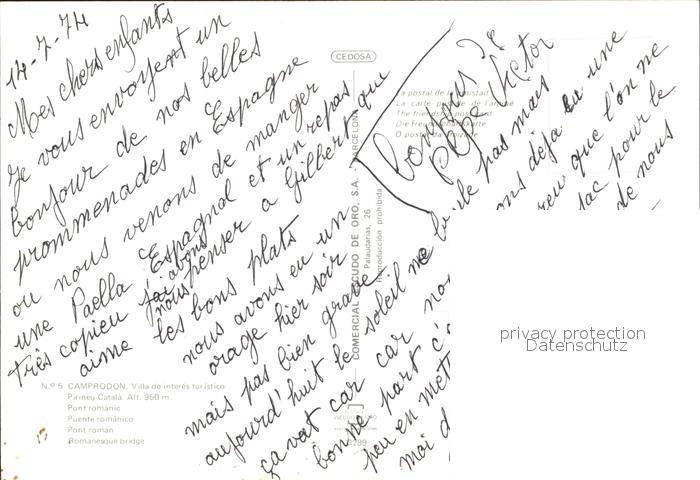 14-7-74
Mes chers enfants
Je vous envoyent un
bonjour de nos belles
prommenades en Espagne
ou nous venons de manger
une Paella Espagnol et un repas
très copieu j'ai abons
nous penser a Gilbert que
aime les bons plats
nous avons eu un
orage hier soir
mais pas bien grave
aujourd'huit le soleil ne
ça vat car car no
bonne part c'
peu en met
moi d
pas mais
ons déja eu une
que l'on ne
sac pour le
de nous
Bonjour de
CEDOSA
La postal de la amistad
La carte postale de l'amitié
The friendship post card
Die Freundschaftskarte
COMERCIAL ESCUDO DE ORO, S.A. - BARCELONA
Palaudarias, 26
Reproducción prohibida
N.º 5 CAMPRODON. Villa de interés turístico
Pirineu Català. Alt. 950 m.
Pont romànic
Puente románico
Pont roman
Romanesque bridge
privacy protection
Datenschutz